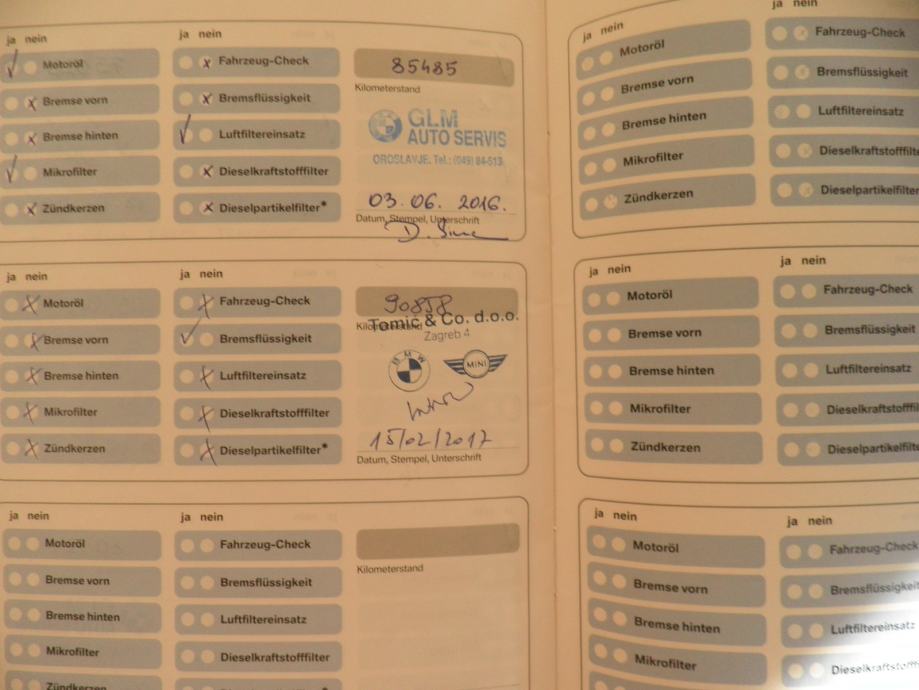 ja nein
Motoröl
Bremse vorn
Bremse hinten
Mikrofilter
Zündkerzen
ja nein
Fahrzeug-Check
Bremsflüssigkeit
Luftfiltereinsatz
Dieselkraftstofffilter
Dieselpartikelfilter*
85485
Kilometerstand
GLM
AUTO SERVIS
OROSLAVJE. Tel.: (049) 84-513
03.06.2016.
Datum, Stempel, Unterschrift
ja nein
Motoröl
Bremse vorn
Bremse hinten
Mikrofilter
Zündkerzen
ja nein
Fahrzeug-Check
Bremsflüssigkeit
Luftfiltereinsatz
Dieselkraftstofffilter
Dieselpartikelfilter*
90858
Tomić & Co. d.o.o.
Zagreb 4
BMW
MINI
15/02/2017
Datum, Stempel, Unterschrift
ja nein
Motoröl
Bremse vorn
Bremse hinten
Mikrofilter
Zündkerzen
ja nein
Fahrzeug-Check
Bremsflüssigkeit
Luftfiltereinsatz
Dieselkraftstofffilter
Kilometerstand
ja nein
Motoröl
Bremse vorn
Bremse hinten
Mikrofilter
Zündkerzen
ja nein
Fahrzeug-Check
Bremsflüssigkeit
Luftfiltereinsatz
Dieselkraftstofffilte
Dieselpartikelfilter
ja nein
Motoröl
Bremse vorn
Bremse hinten
Mikrofilter
Zündkerzen
ja nein
Fahrzeug-Check
Bremsflüssigkeit
Luftfiltereinsatz
Dieselkraftstofffil
Dieselpartikelfilte
ja nein
Motoröl
Bremse vorn
Bremse hinten
Mikrofilter
ja nein
Fahrzeug-Check
Bremsflüssigkeit
Luftfiltereinsatz
Dieselkraftstofff